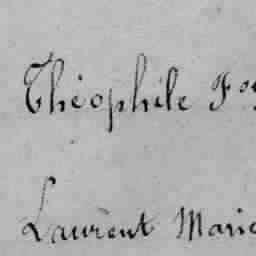 Théophile
Laurent Marie